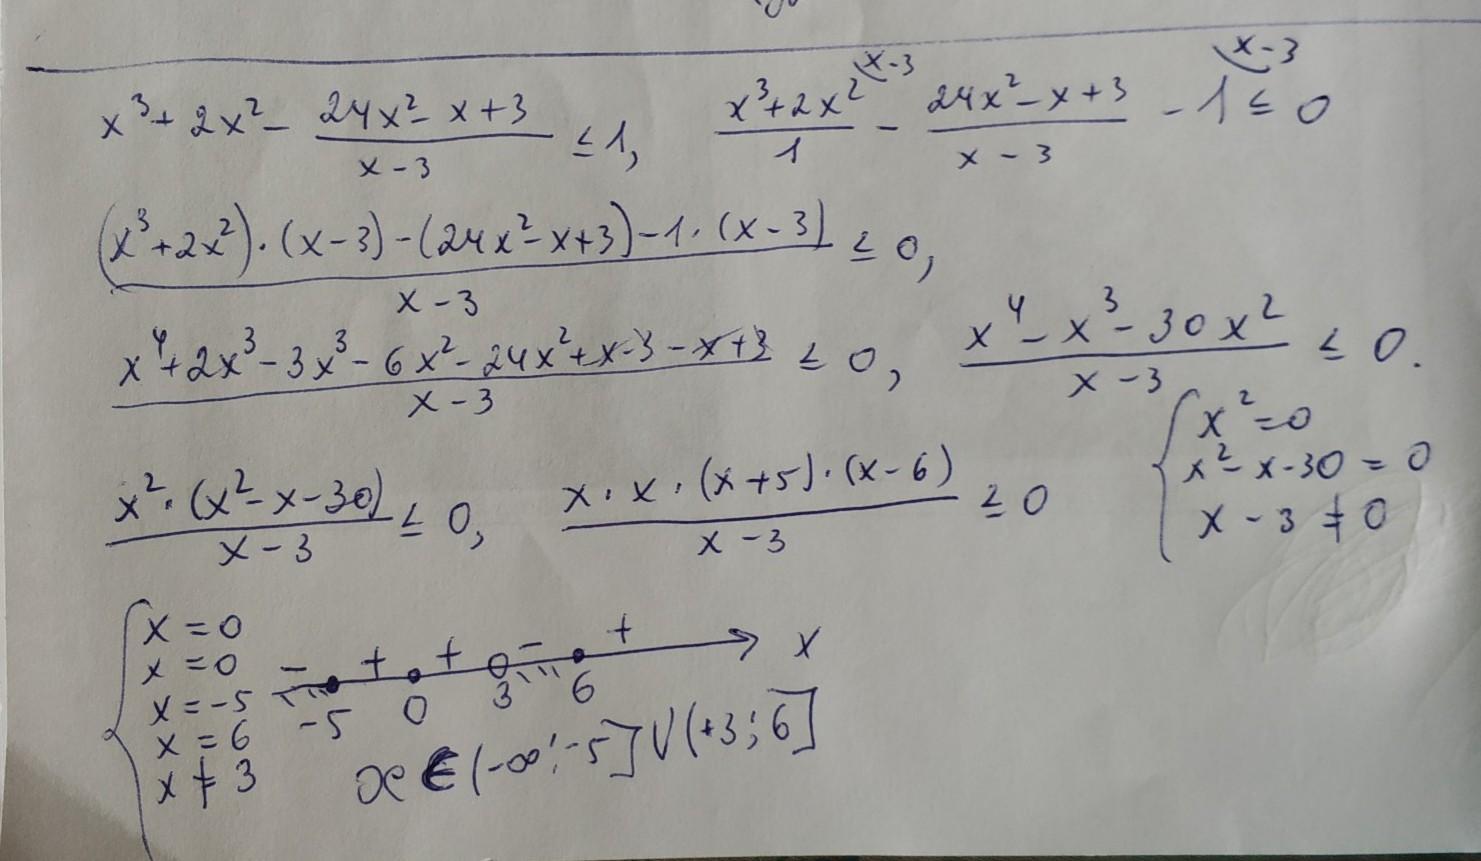 x³ + 2x² - (24x² - x + 3)/(x - 3) ≤ 1, (x³ + 2x²)/1 - (24x² - x + 3)/(x - 3) - 1 ≤ 0 x-3 x-3
((x³ + 2x²)·(x - 3) - (24x² - x + 3) - 1·(x - 3))/(x - 3) ≤ 0,
(x⁴ + 2x³ - 3x³ - 6x² - 24x² + x - 3 - x + 3)/(x - 3) ≤ 0, (x⁴ - x³ - 30x²)/(x - 3) ≤ 0.
(x²·(x² - x - 30))/(x - 3) ≤ 0, (x·x·(x + 5)·(x - 6))/(x - 3) ≤ 0
{ x² = 0
x² - x - 30 = 0
x - 3 ≠ 0
{ x = 0
x = 0
x = -5
x = 6
x ≠ 3
- + + - + x
-5 0 3 6
x ∈ (-∞; -5] ∨ (+3; 6]